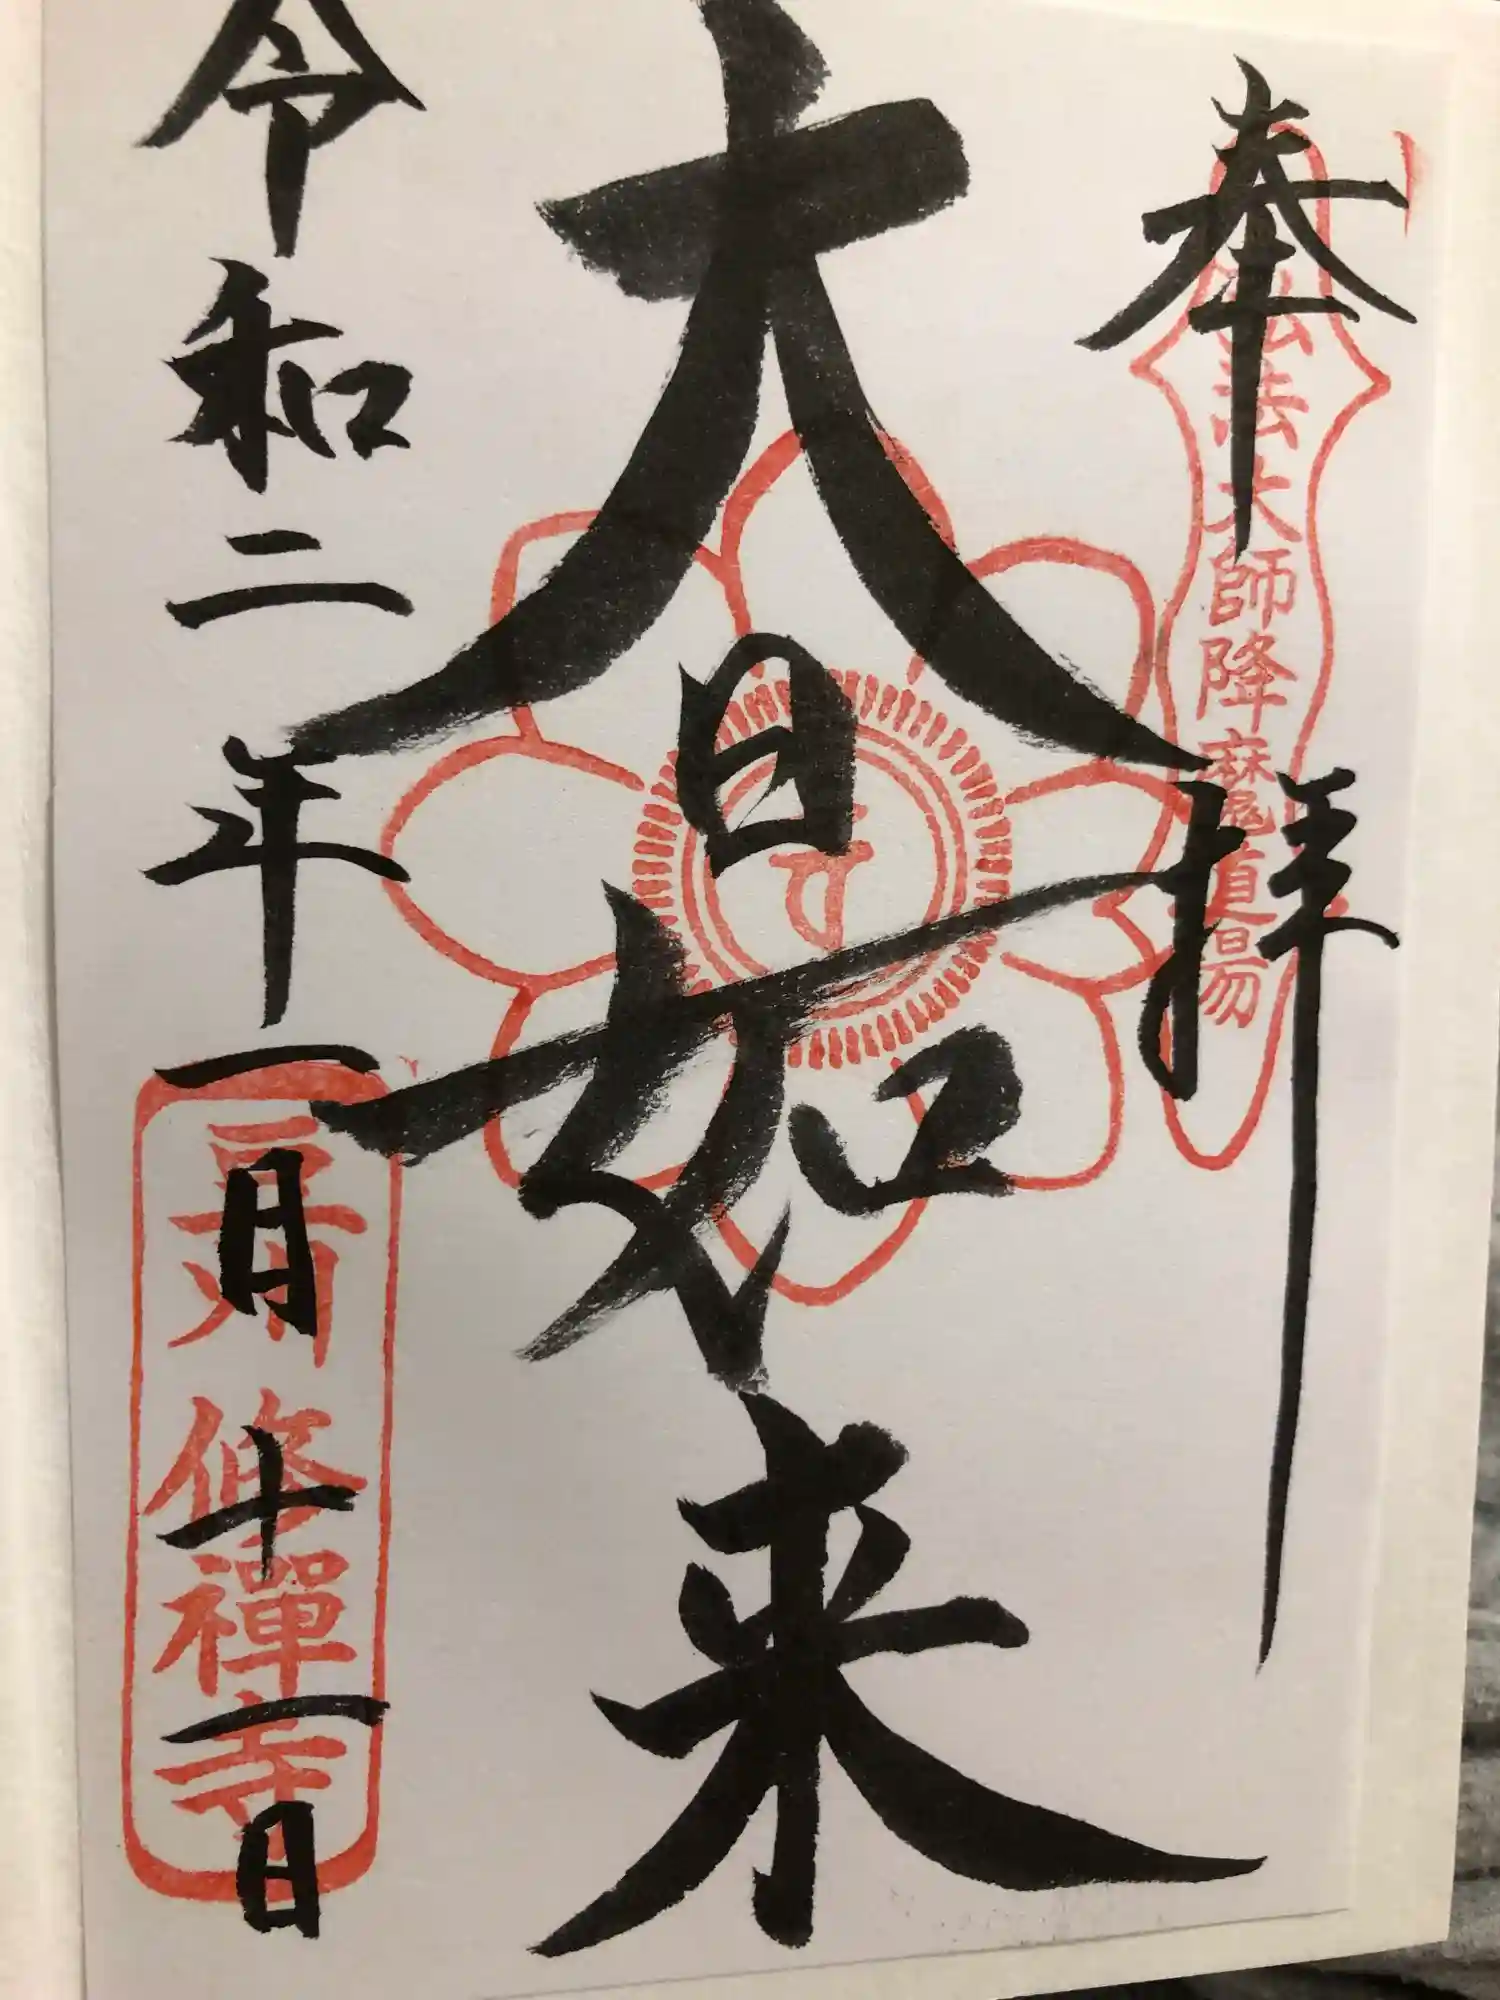 奉拝
弘法大師降魔道場
大日如来
令和二年一月十一日
修禅寺